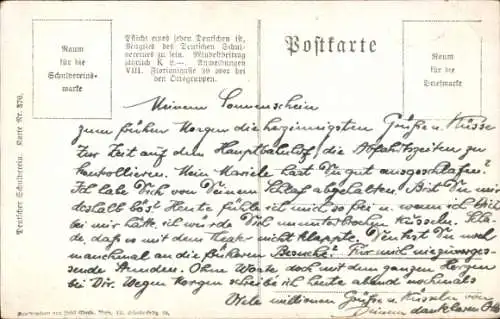 Raum
für die
Schulvereins-
marke
Pflicht eines jeden Deutschen ist,
Mitglied des Deutschen Schul-
vereines zu sein. Mindestbeitrag
jährlich K 2.—. Anmeldungen
VIII. Floriangasse 39 oder bei
den Ortsgruppen.
Postkarte
Raum
für die
Briefmarke
Deutscher Schulverein. Karte Nr. 370.
Meinem Sonnenschein
zum frühen Morgen die herzinnigsten Grüße u. Küsse
Zur Zeit auf dem Hauptbahnhof, die Abfahrtszeiten zu
kontrollieren. Mein Mariele hast Du gut ausgeschlafen?
Ich habe Dich von Deinem Schlaf abgehalten. Bist Du mir
deshalb bös? Heute fühle ich mich so frei u. wenn ich Dich
bei mir hätt, ich würde Dich ununterbrochen küsseln. Scha-
de, daß es mit dem Theater nicht klappte. Denkst Du noch
manchmal an die früheren Besuche? Für mich nie zu verges-
sende Stunden. Ohne Worte doch mit dem ganzen Herzen
bei Dir. Wegen Morgen schreibe ich heute abend nochmals
Viele millionen Grüße u. Küsseln von
Deinem dankbaren